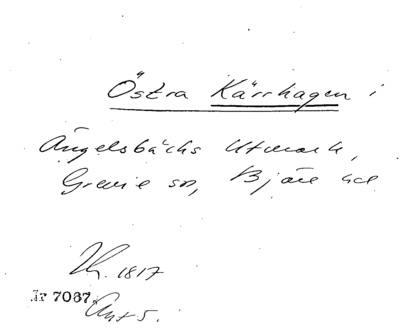 Östra Kärrhagen i
Ängelsbäcks Utmark,
Grevie sn, Bjäre hd
Kr. 1817
Jr 7067
Ant 5.